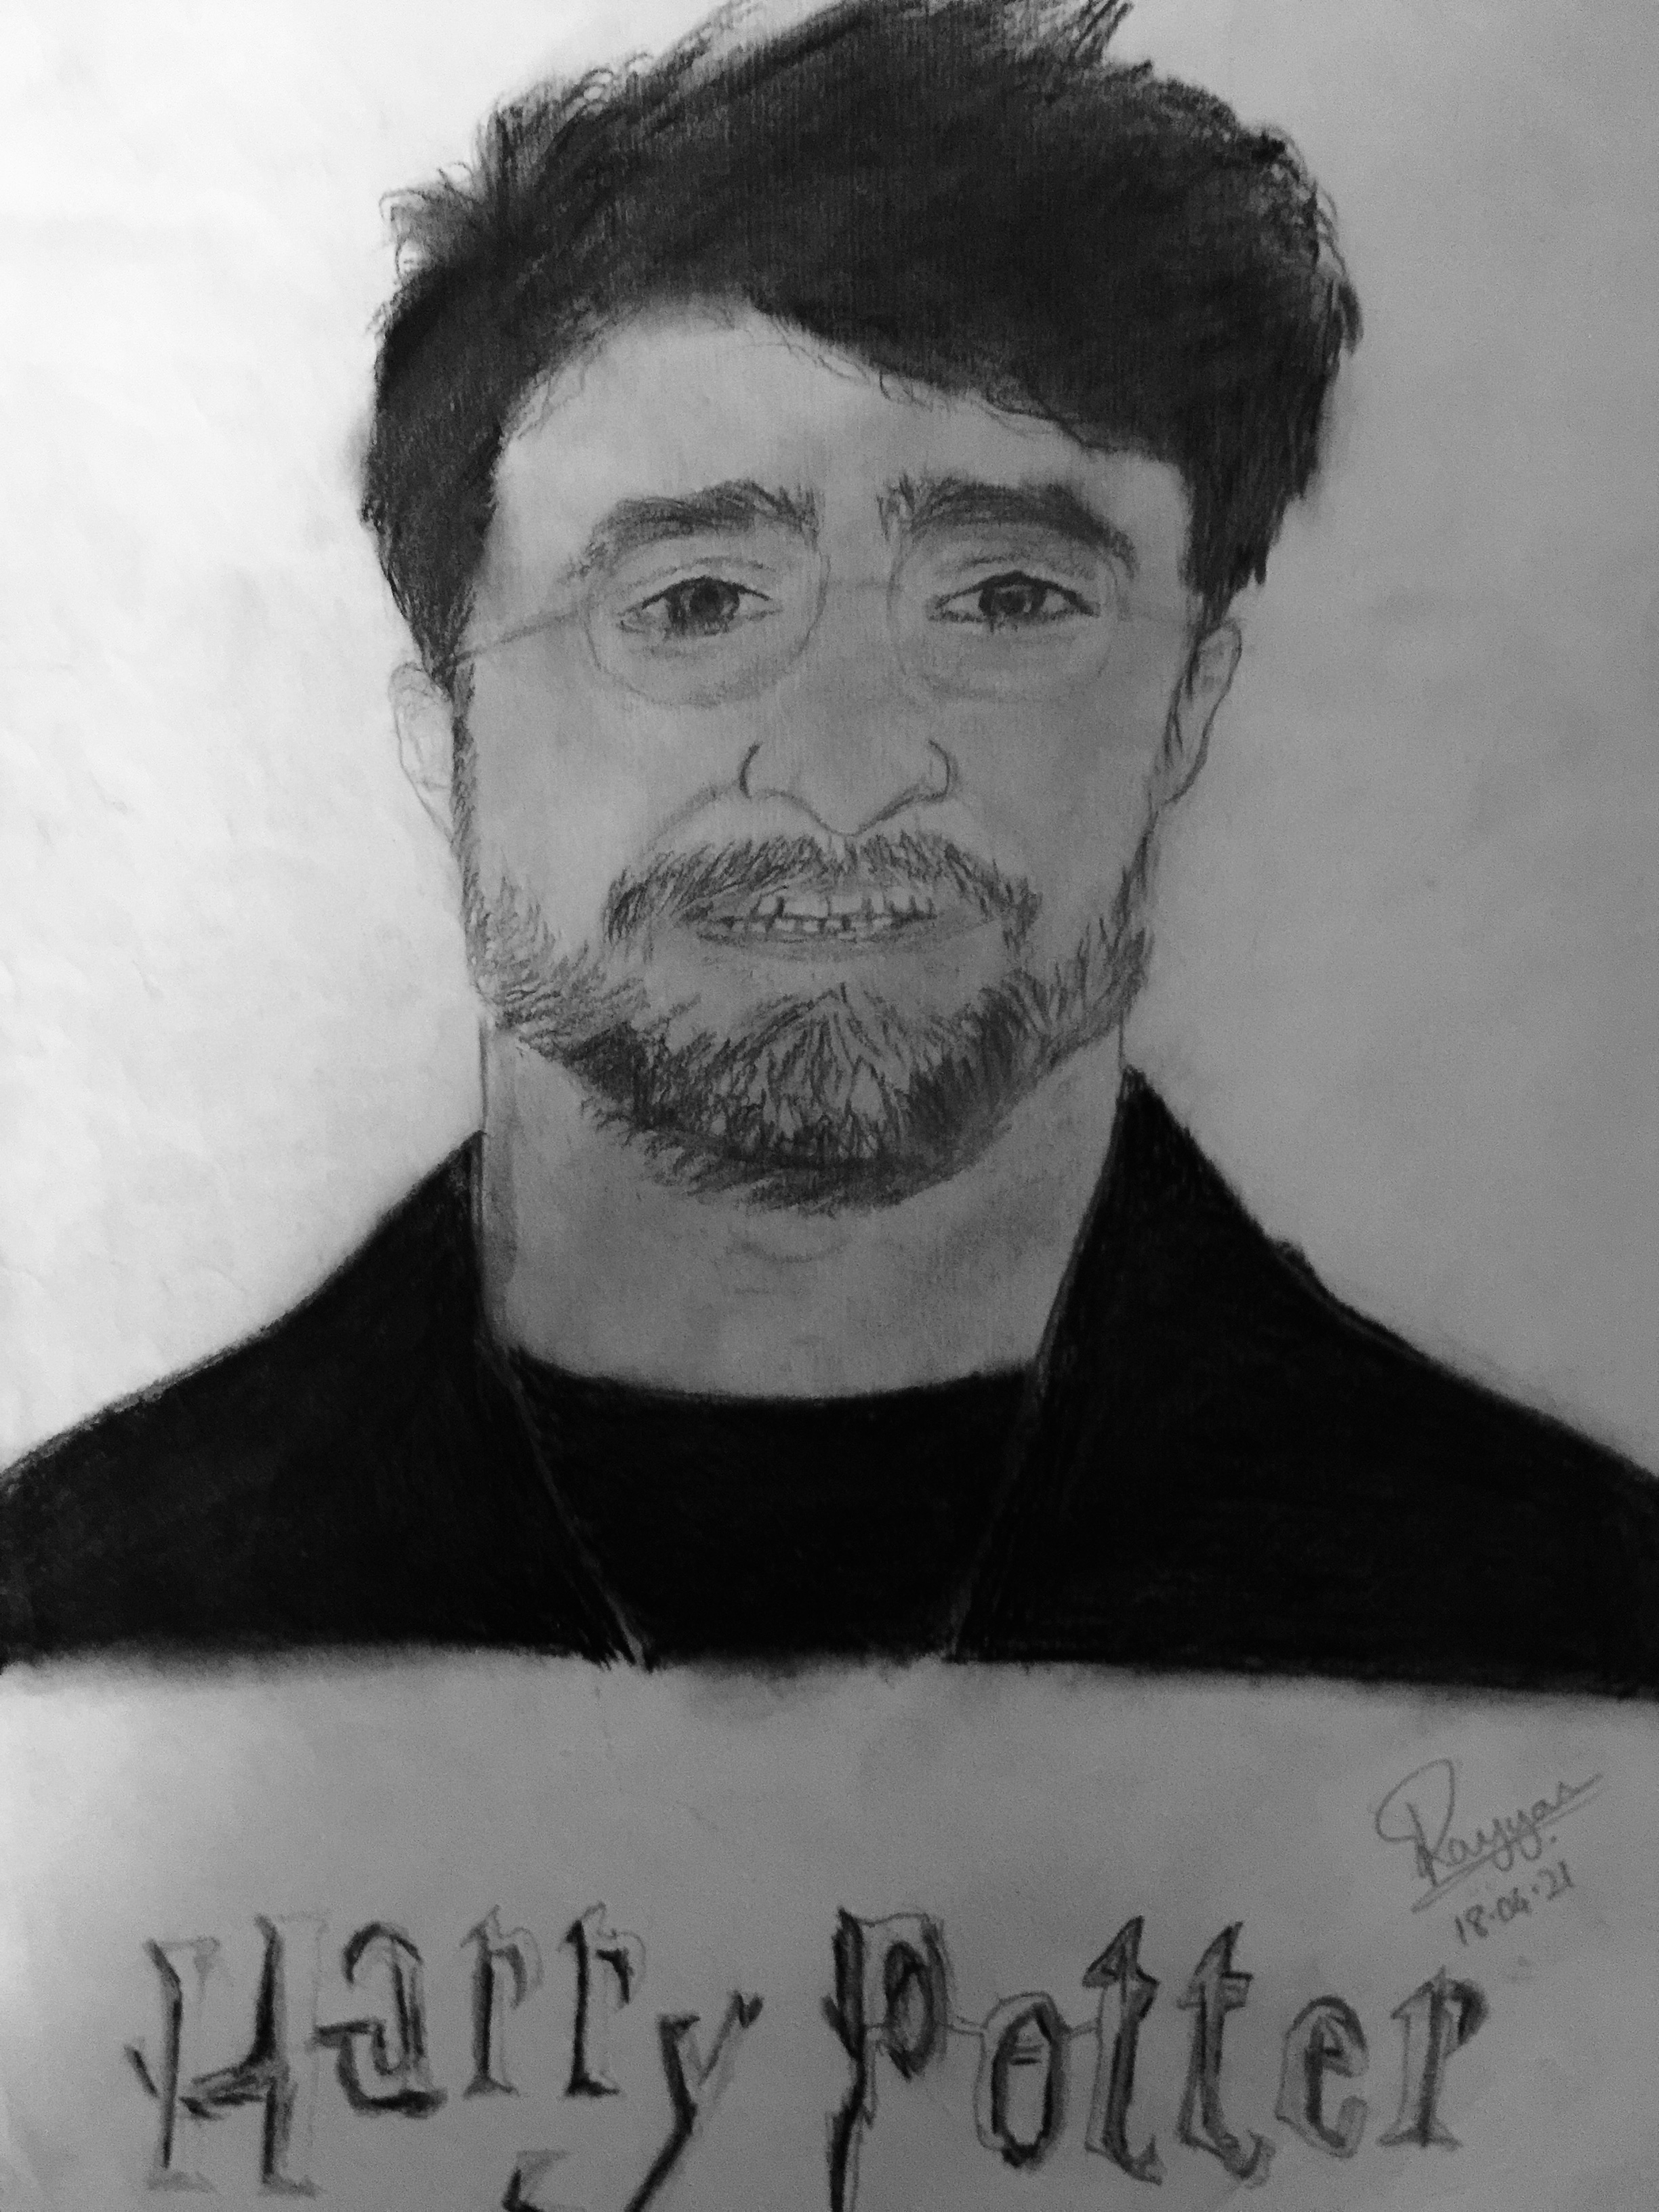 Rayyan
18.04.21
Harry Potter